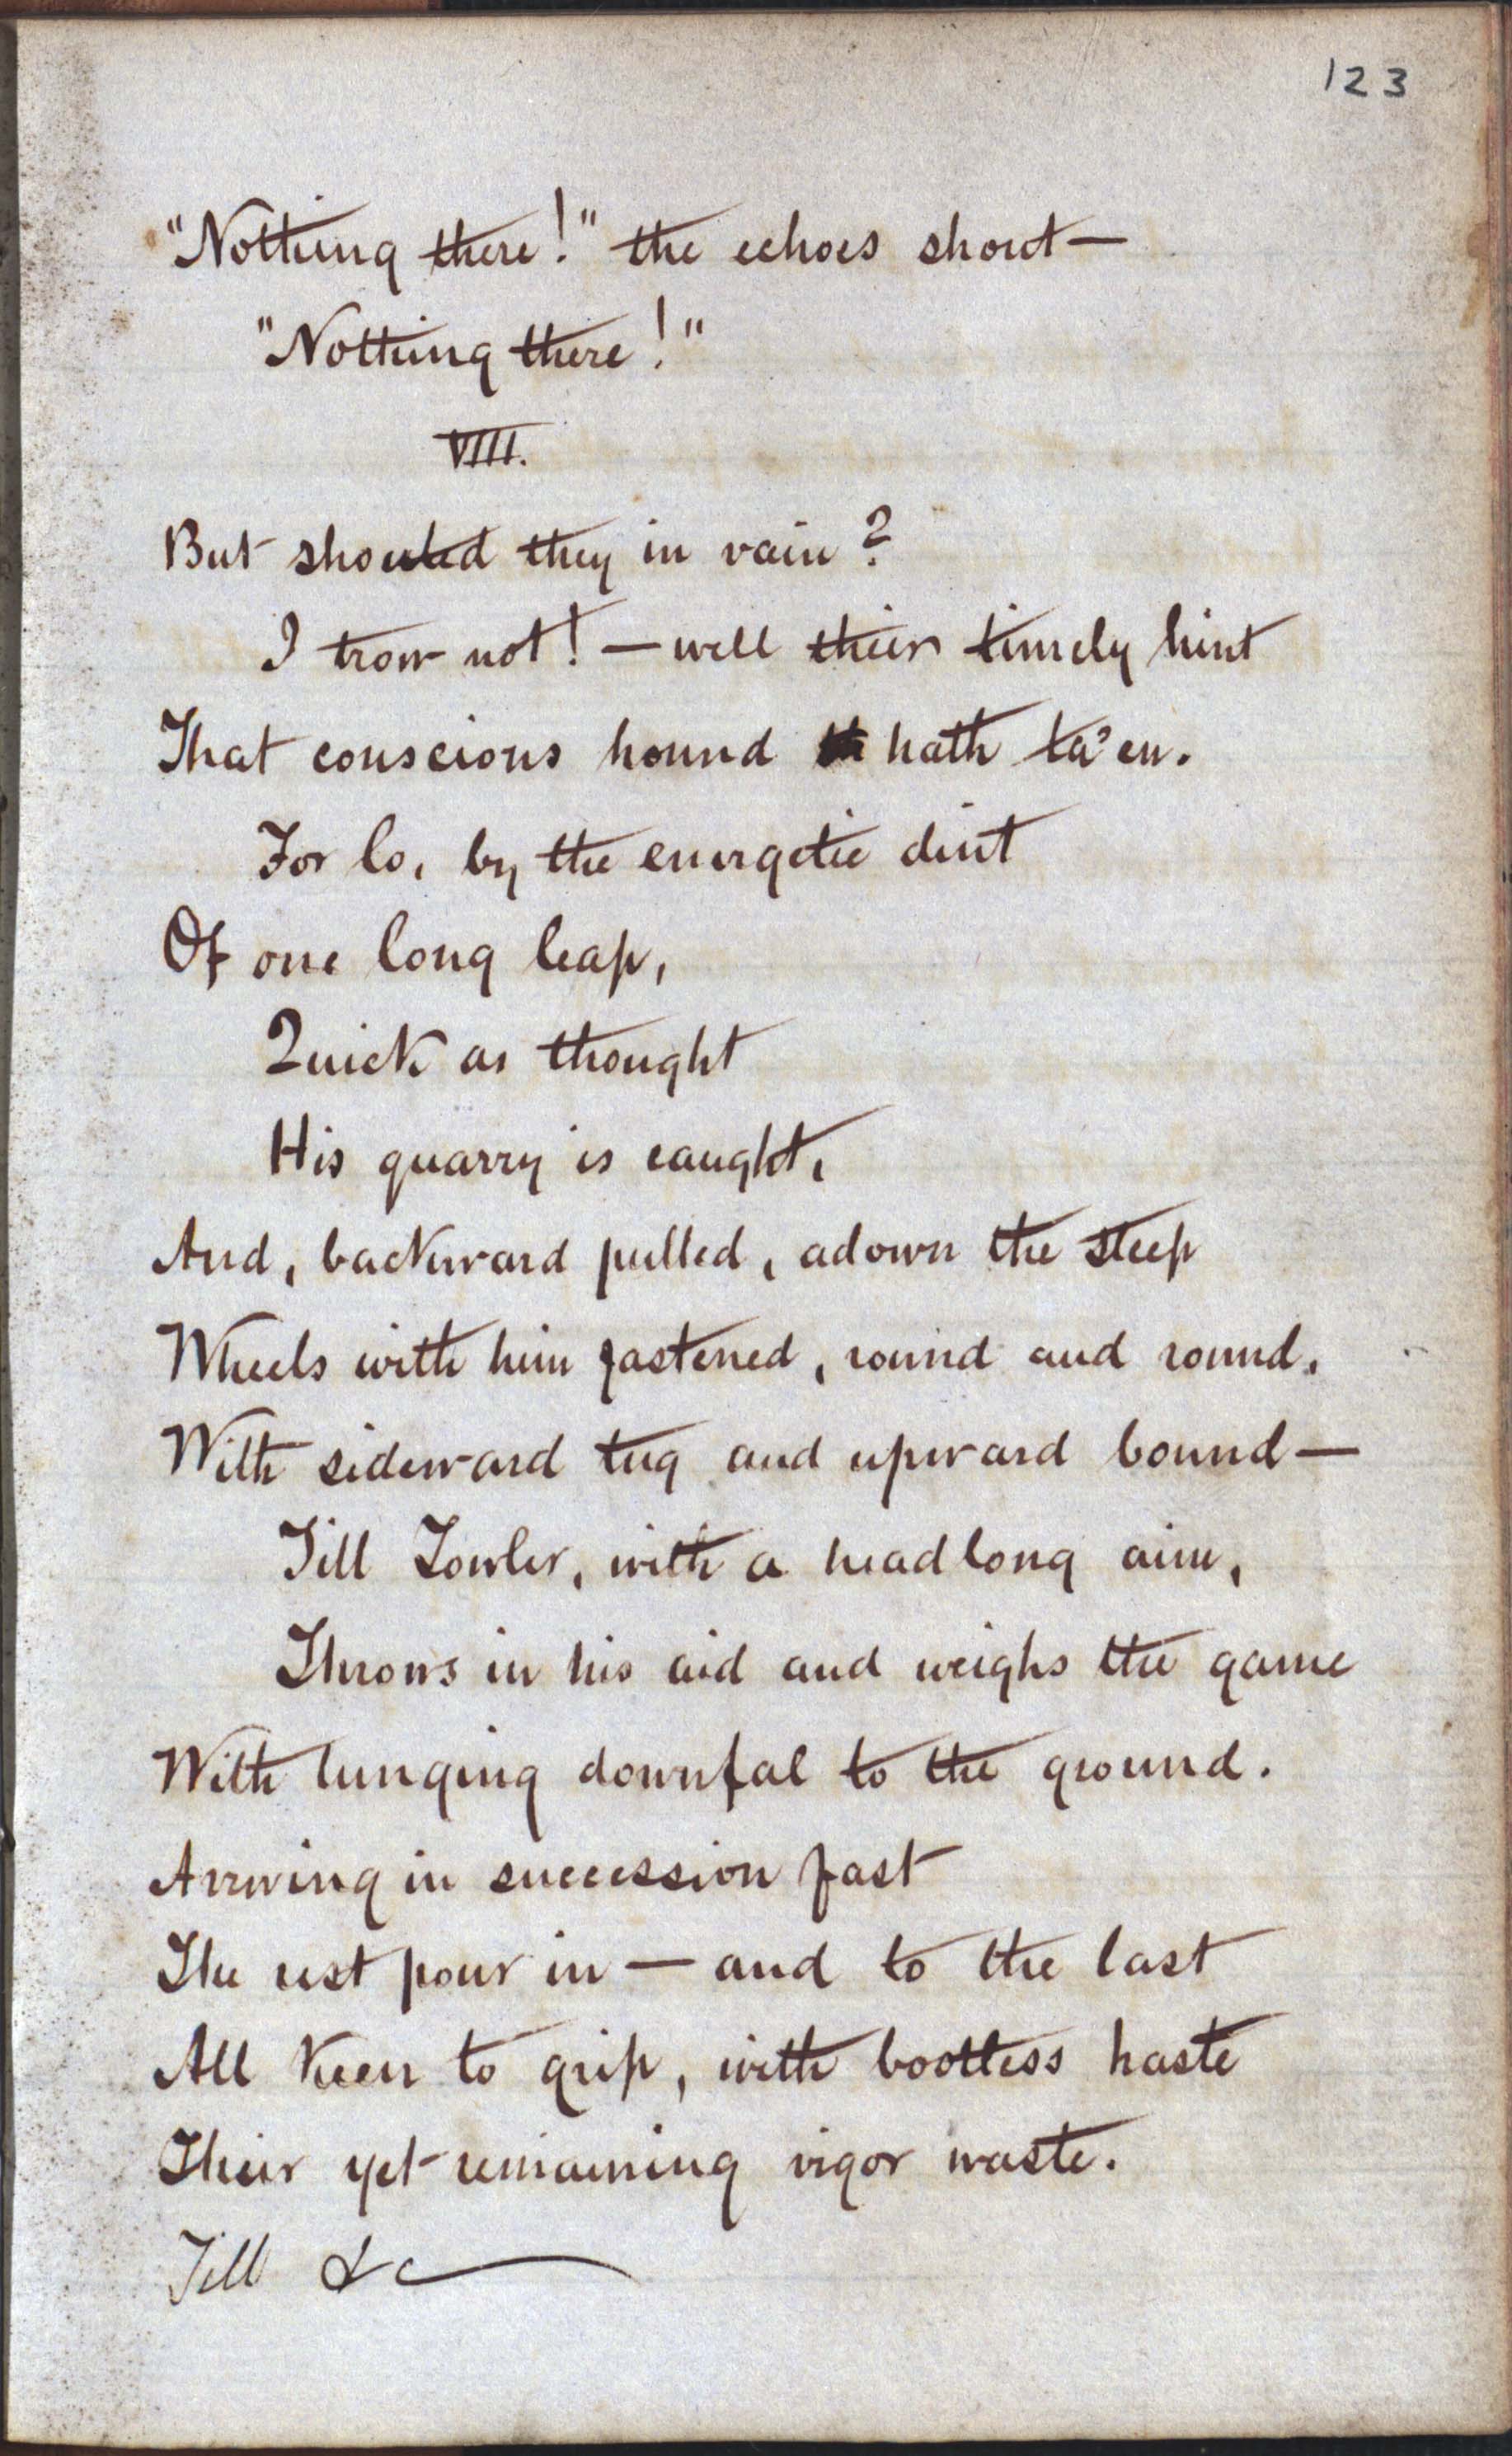 123
"Nothing there!" the echoes shout—
"Nothing there!"
VIII.
But shouted they in vain?
I trow not! — well their timely hint
That conscious hound hath ta'en.
For lo, by the energetic dint
Of one long leap,
Quick as thought
His quarry is caught,
And, backward pulled, adown the steep
Wheels with him fastened, round and round,
With sideward tug and upward bound—
Till Towler, with a headlong aim,
Throws in his aid and weighs the game
With lunging downfal to the ground.
Arriving in succession fast
The rest pour in — and to the last
All keen to grip, with bootless haste
Their yet remaining vigor waste.
Till &c